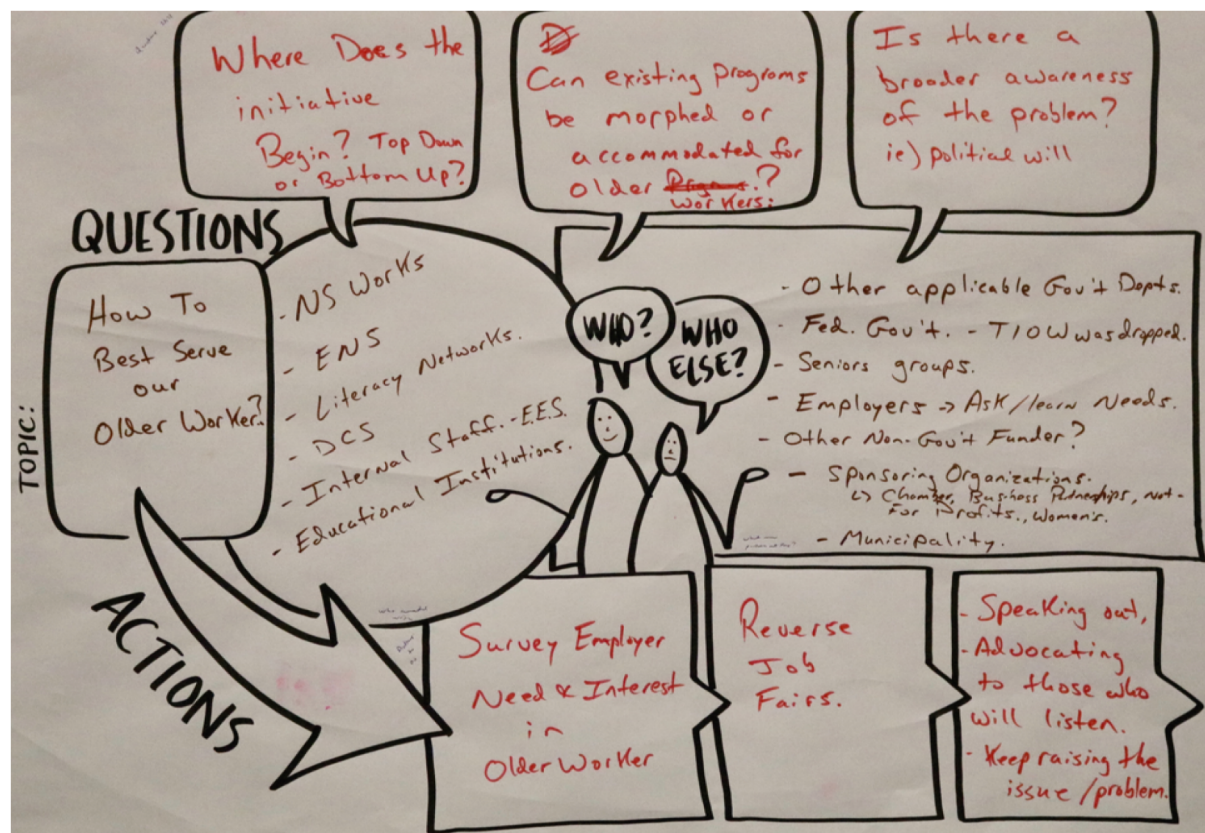 Where Does the
initiative
Begin? Top Down
or Bottom Up?
Can existing programs
be morphed or
accommodated for
older Prgms.?
workers:
Is there a
broader awareness
of the problem?
ie) political will
QUESTIONS
TOPIC:
How To
Best Serve
our
Older Worker?
- NS Works
- ENS
- Literacy Networks.
- DCS
- Internal Staff. - E.E.S.
- Educational Institutions.
WHO?
WHO
ELSE?
- Other applicable Gov't Depts.
- Fed. Gov't. - TIOW was dropped.
- Seniors groups.
- Employers → Ask/learn Needs.
- Other Non-Gov't Funder?
- Sponsoring Organizations.
↳ Chamber, Business Partnerships, Not-
For Profits., Women's.
- Municipality.
ACTIONS
Survey Employer
Need & Interest
in
Older Worker
Reverse
Job
Fairs.
- Speaking out,
- Advocating
to those who
will listen.
- Keep raising the
issue/problem.